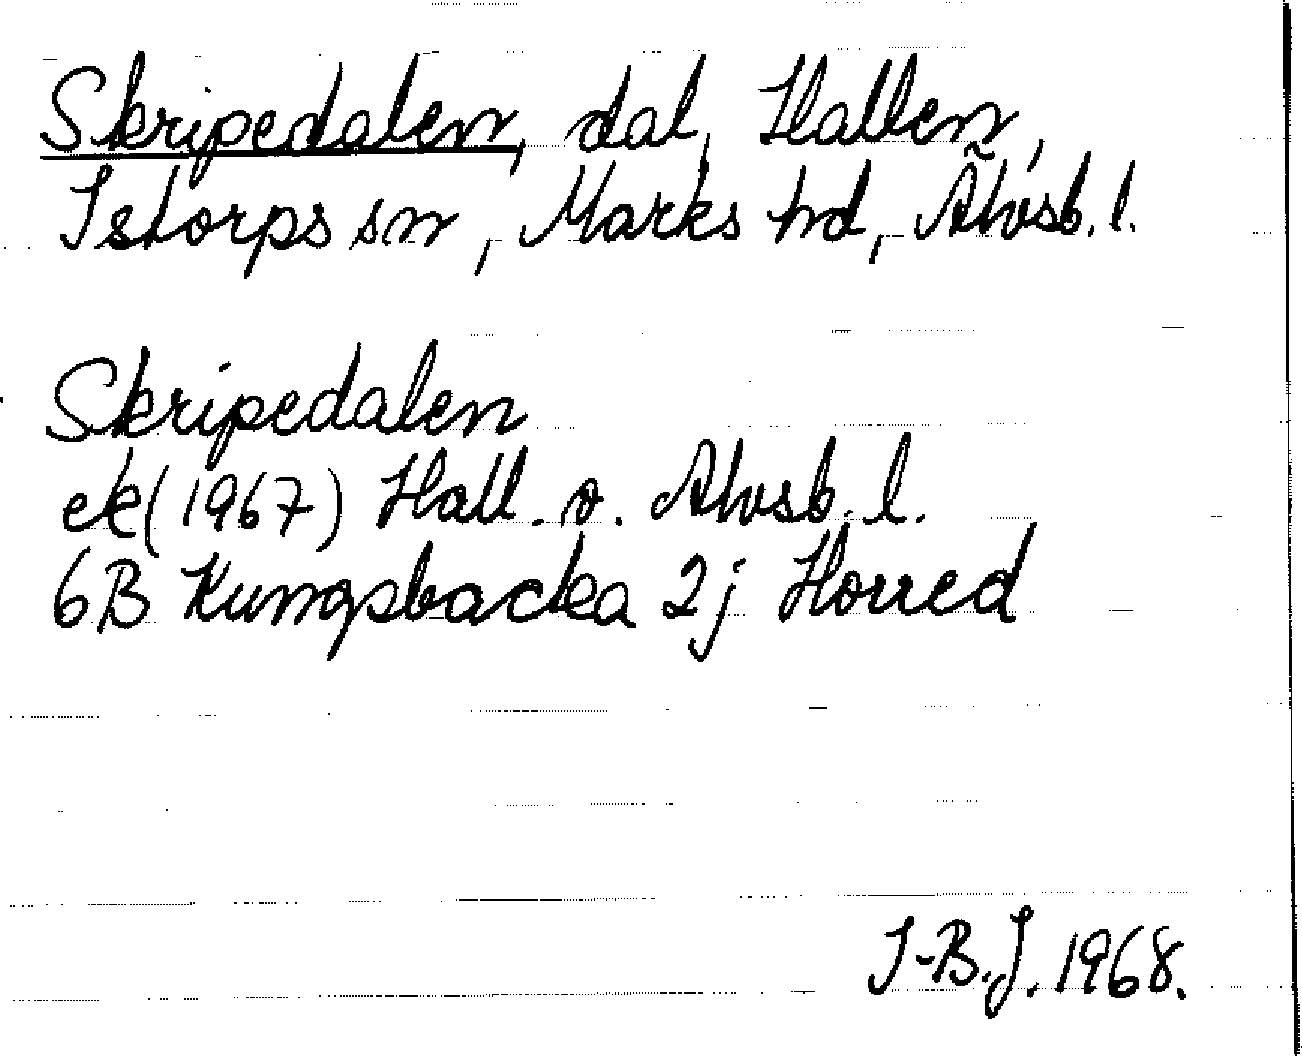 Skripedalen, dal, Hallen,
Istorps sn, Marks hd, Älvsb. l.
Skripedalen
ek (1967) Hall. o. Älvsb. l.
6B Kungsbacka 2j Horred
I-B.J. 1968.